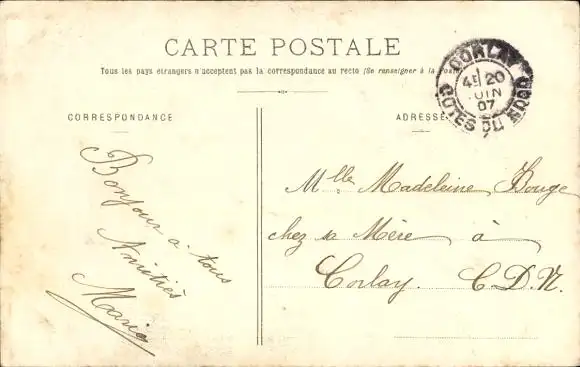 CARTE POSTALE
Tous les pays étrangers n'acceptent pas la correspondance au recto (Se renseigner à la Poste)
CORRESPONDANCE
ADRESSE
CORLAY
4E 20
JUIN
07
COTES DU NORD
Bonjour à tous
Amitiés
Marie
Mlle Madeleine Bouge
chez sa Mère à
Corlay. C.D.N.